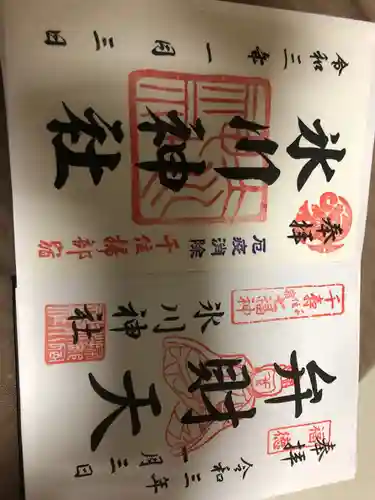 奉拝
氷川神社
厄疫消除
千住
令和三年一月三日
奉拝
千寿七福神
弁財天
氷川神社
令和三年一月三日